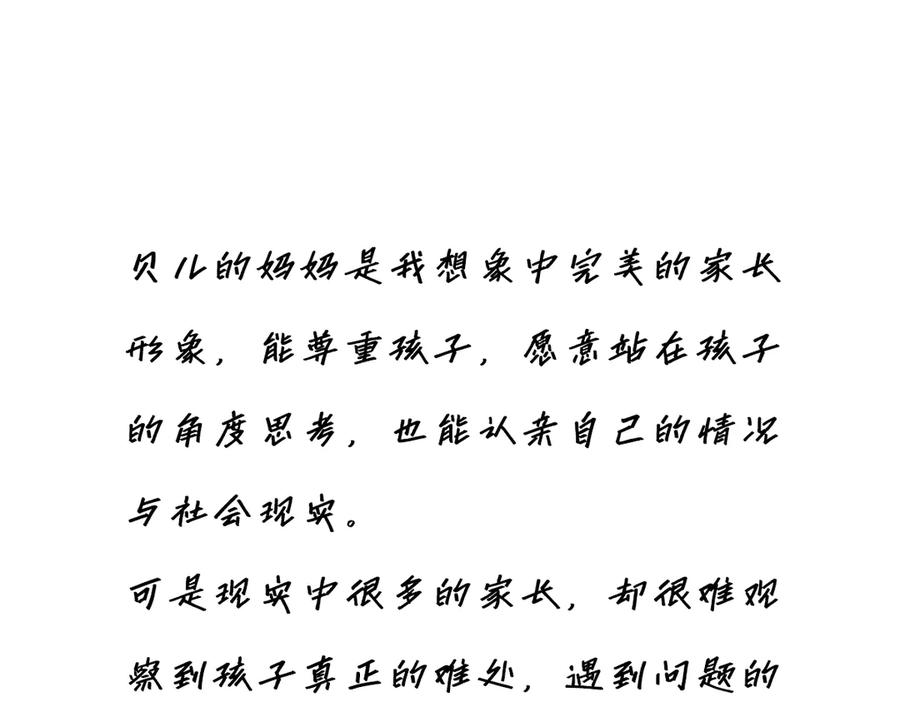 贝儿的妈妈是我想象中完美的家长
形象，能尊重孩子，愿意站在孩子
的角度思考，也能认亲自己的情况
与社会现实。
可是现实中很多的家长，却很难观
察到孩子真正的难处，遇到问题的